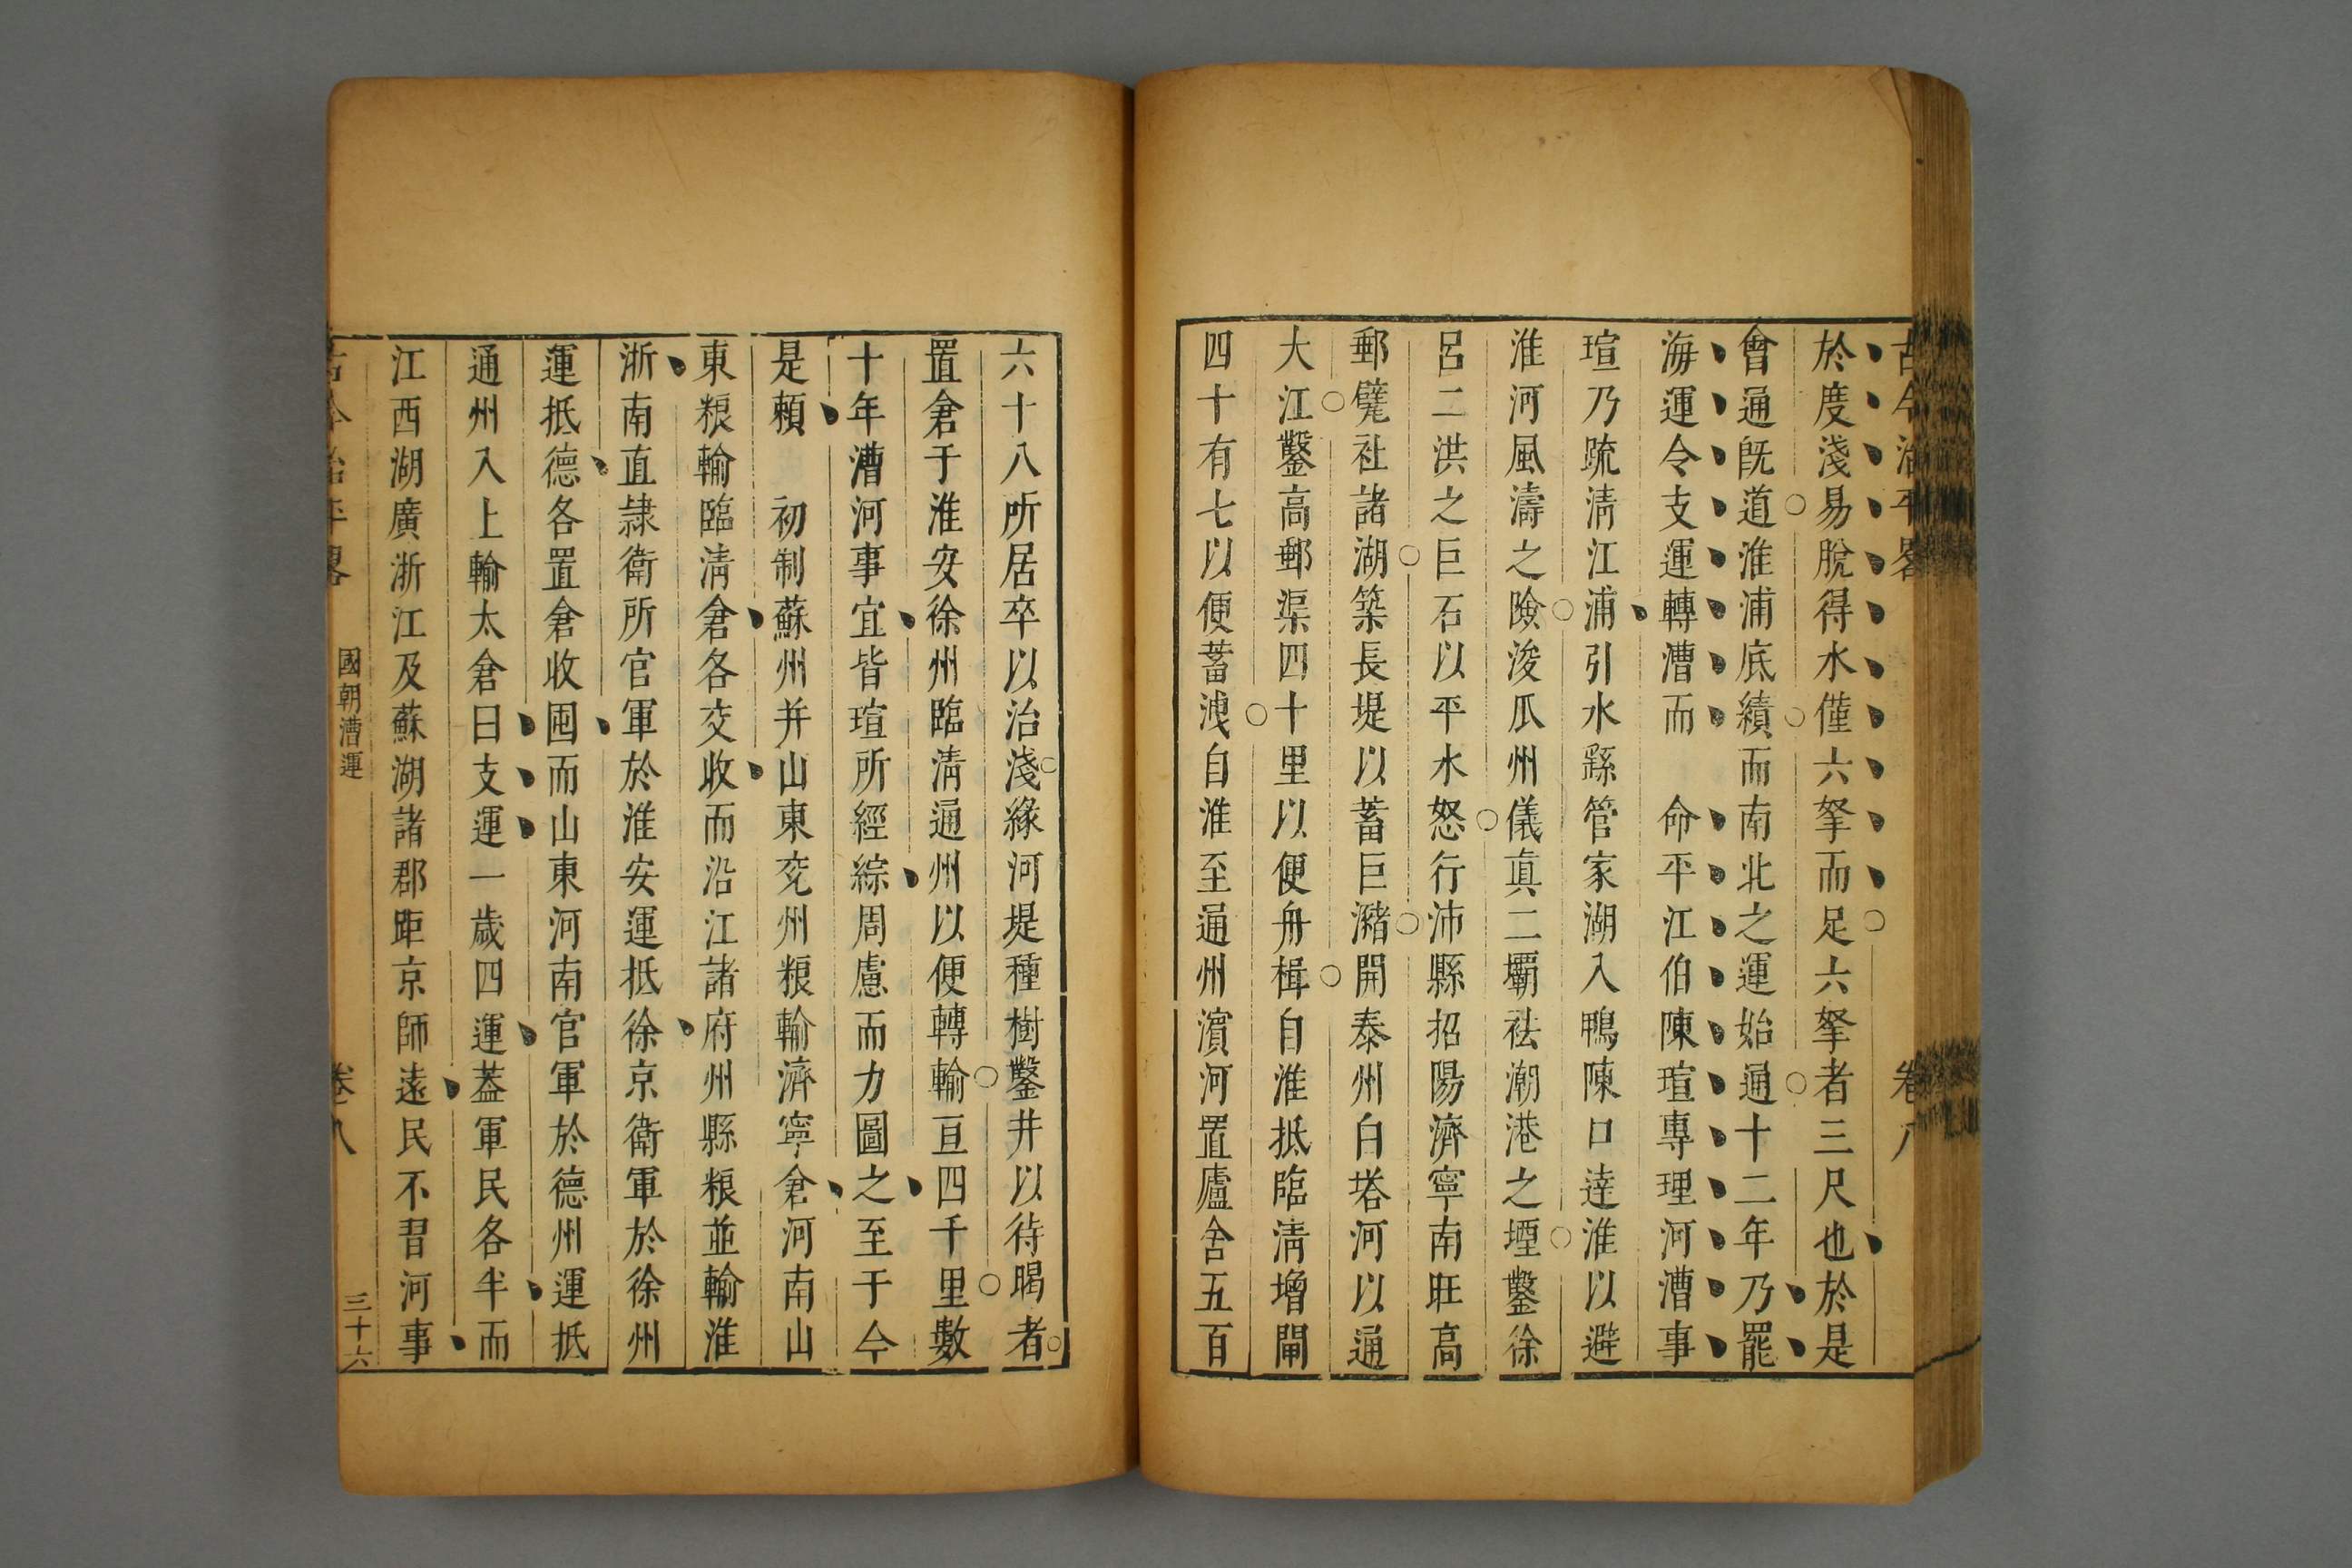 古今治平畧 卷八
於度淺易脫得水僅六拏而足六拏者三尺也於是
會通旣道淮浦底績而南北之運始通十二年乃罷
海運令支運轉漕而 命平江伯陳瑄專理河漕事
瑄乃疏淸江浦引水繇管家湖入鴨陳口逹淮以避
淮河風濤之險浚瓜州儀眞二壩祛潮港之堙鑿徐
呂二洪之巨石以平水怒行沛縣招陽濟寧南旺高
郵甓社諸湖築長堤以蓄巨瀦開泰州白塔河以通
大江鑿高郵渠四十里以便舟楫自淮抵臨淸增閘
四十有七以便蓄洩自淮至通州濵河置廬舍五百
六十八所居卒以治淺緣河堤種樹鑿井以待暍者
置倉于淮安徐州臨淸通州以便轉輸亘四千里數
十年漕河事宜皆瑄所經綜周慮而力圖之至于今
是賴 初制蘇州并山東兗州粮輸濟寧倉河南山
東粮輸臨淸倉各交收而沿江諸府州縣粮並輸淮
浙南直隷衛所官軍於淮安運抵徐京衛軍於徐州
運抵德各置倉收囤而山東河南官軍於德州運抵
通州入上輸太倉曰支運一歲四運葢軍民各半而
江西湖廣浙江及蘇湖諸郡距京師遠民不習河事
古今治平畧 國朝漕運 卷八 三十六